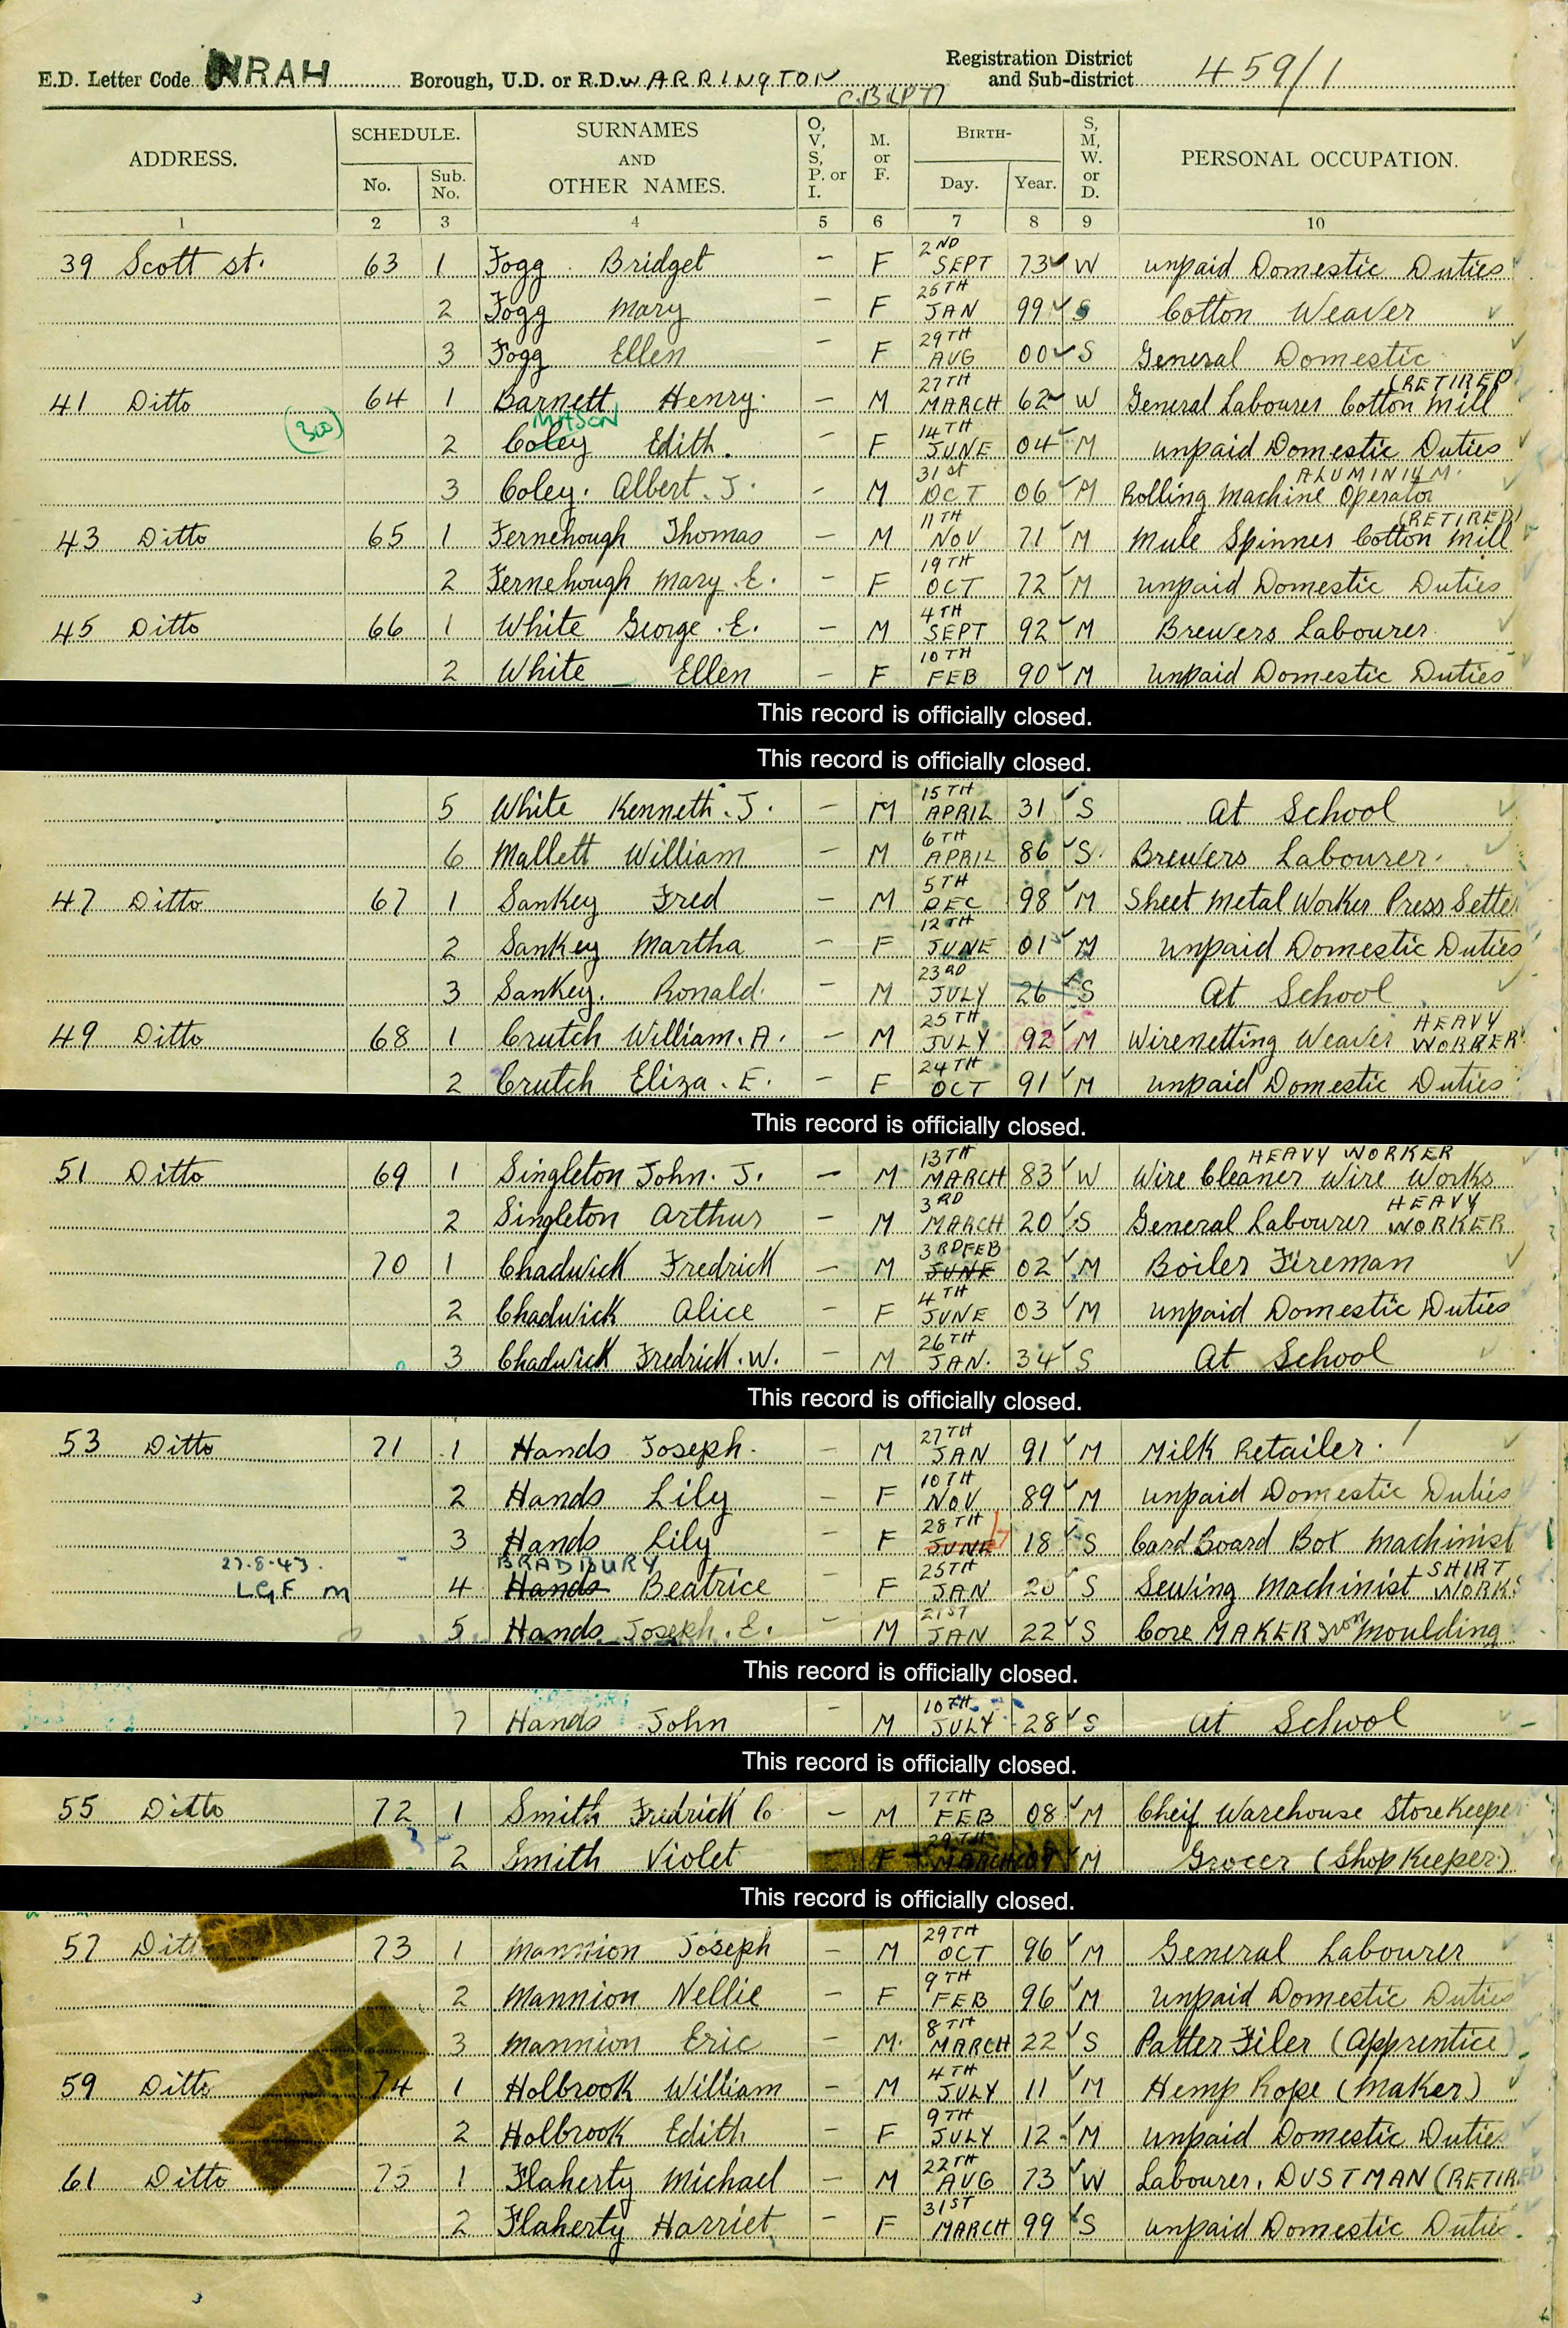 E.D. Letter Code NRAH Borough, U.D. or R.D. WARRINGTON Registration District and Sub-district 459/1
C.B. (PT)
ADDRESS. SCHEDULE. SURNAMES AND OTHER NAMES. O, V, S, P. or I. M. or F. BIRTH- S, M, W. or D. PERSONAL OCCUPATION.
No. Sub. No. Day. Year.
1 2 3 4 5 6 7 8 9 10
39 Scott st. 63 1 Fogg Bridget - F 2ND SEPT 73 W unpaid Domestic Duties
2 Fogg Mary - F 25TH JAN 99 S Cotton Weaver
3 Fogg Ellen - F 29TH AUG 00 S General Domestic
41 Ditto 64 1 Barnett Henry. - M 27TH MARCH 62 W General Labourer Cotton Mill (RETIRED)
(300) 2 Coley MATSON Edith. - F 14TH JUNE 04 M unpaid Domestic Duties
3 Coley. Albert. J. - M 31st OCT 06 M Rolling Machine Operator ALUMINIUM.
43 Ditto 65 1 Fernehough Thomas - M 11TH NOV 71 M Mule Spinner Cotton Mill (RETIRED)
2 Fernehough Mary. E. - F 19TH OCT 72 M unpaid Domestic Duties
45 Ditto 66 1 White George. E. - M 4TH SEPT 92 M Brewers Labourer
2 White Ellen - F 10TH FEB 90 M unpaid Domestic Duties
This record is officially closed.
This record is officially closed.
5 White Kenneth. J. - M 15TH APRIL 31 S At School
6 Mallett William - M 6TH APRIL 86 S. Brewers Labourer.
47 Ditto 67 1 Sankey Fred - M 5TH DEC 98 M Sheet Metal Worker Press Sette
2 Sankey Martha - F 12TH JUNE 01 M unpaid Domestic Duties
3 Sankey. Ronald. - M 23RD JULY 26 S At School
49 Ditto 68 1 Crutch William. A. - M 25TH JULY 92 M Wirenetting Weaver HEAVY WORKER
2 Crutch Eliza. E. - F 24TH OCT 91 M unpaid Domestic Duties
This record is officially closed.
51 Ditto 69 1 Singleton John. J. - M 13TH MARCH 83 W Wire Cleaner Wire Works HEAVY WORKER
2 Singleton Arthur - M 3RD MARCH 20 S General Labourer HEAVY WORKER
70 1 Chadwick Fredrick - M 3RD FEB JUNE 02 M Boiler Fireman
2 Chadwick Alice - F 4TH JUNE 03 M unpaid Domestic Duties
3 Chadwick Fredrick. W. - M 26TH JAN. 34 S At School
This record is officially closed.
53 Ditto 71 1 Hands Joseph. - M 27TH JAN 91 M Milk Retailer.
2 Hands Lily - F 10TH NOV 89 M unpaid Domestic Duties
3 Hands Lily - F 28TH JUNE 18 S Card Board Box Machinist
27.8.43. LGF M 4 Hands BRADBURY Beatrice F 25TH JAN 20 S Sewing Machinist SHIRT WORKS
5 Hands Joseph. E. - M 21ST JAN 22 S Core MAKER Iron Moulding
This record is officially closed.
7 Hands John - M 10TH JULY 28 S At School
This record is officially closed.
55 Ditto 72 1 Smith Fredrick C - M 7TH FEB 08 M Cheif Warehouse Storekeepe
2 Smith Violet F 29TH MARCH 09 M Grocer (Shop Keeper)
This record is officially closed.
57 Ditto 73 1 Mannion Joseph - M 29TH OCT 96 M General Labourer
2 Mannion Nellie - F 9TH FEB 96 M unpaid Domestic Duties
3 Mannion Eric - M. 8TH MARCH 22 S Patter Filer (Apprentice)
59 Ditto 74 1 Holbrook William - M 4TH JULY 11 M Hemp Rope (Maker)
2 Holbrook Edith - F 9TH JULY 12 M unpaid Domestic Dutie
61 Ditto 75 1 Flaherty Michael - M 22TH AUG 73 W Labourer, DUSTMAN (RETIRED
2 Flaherty Harriet - F 31ST MARCH 99 S unpaid Domestic Dutie